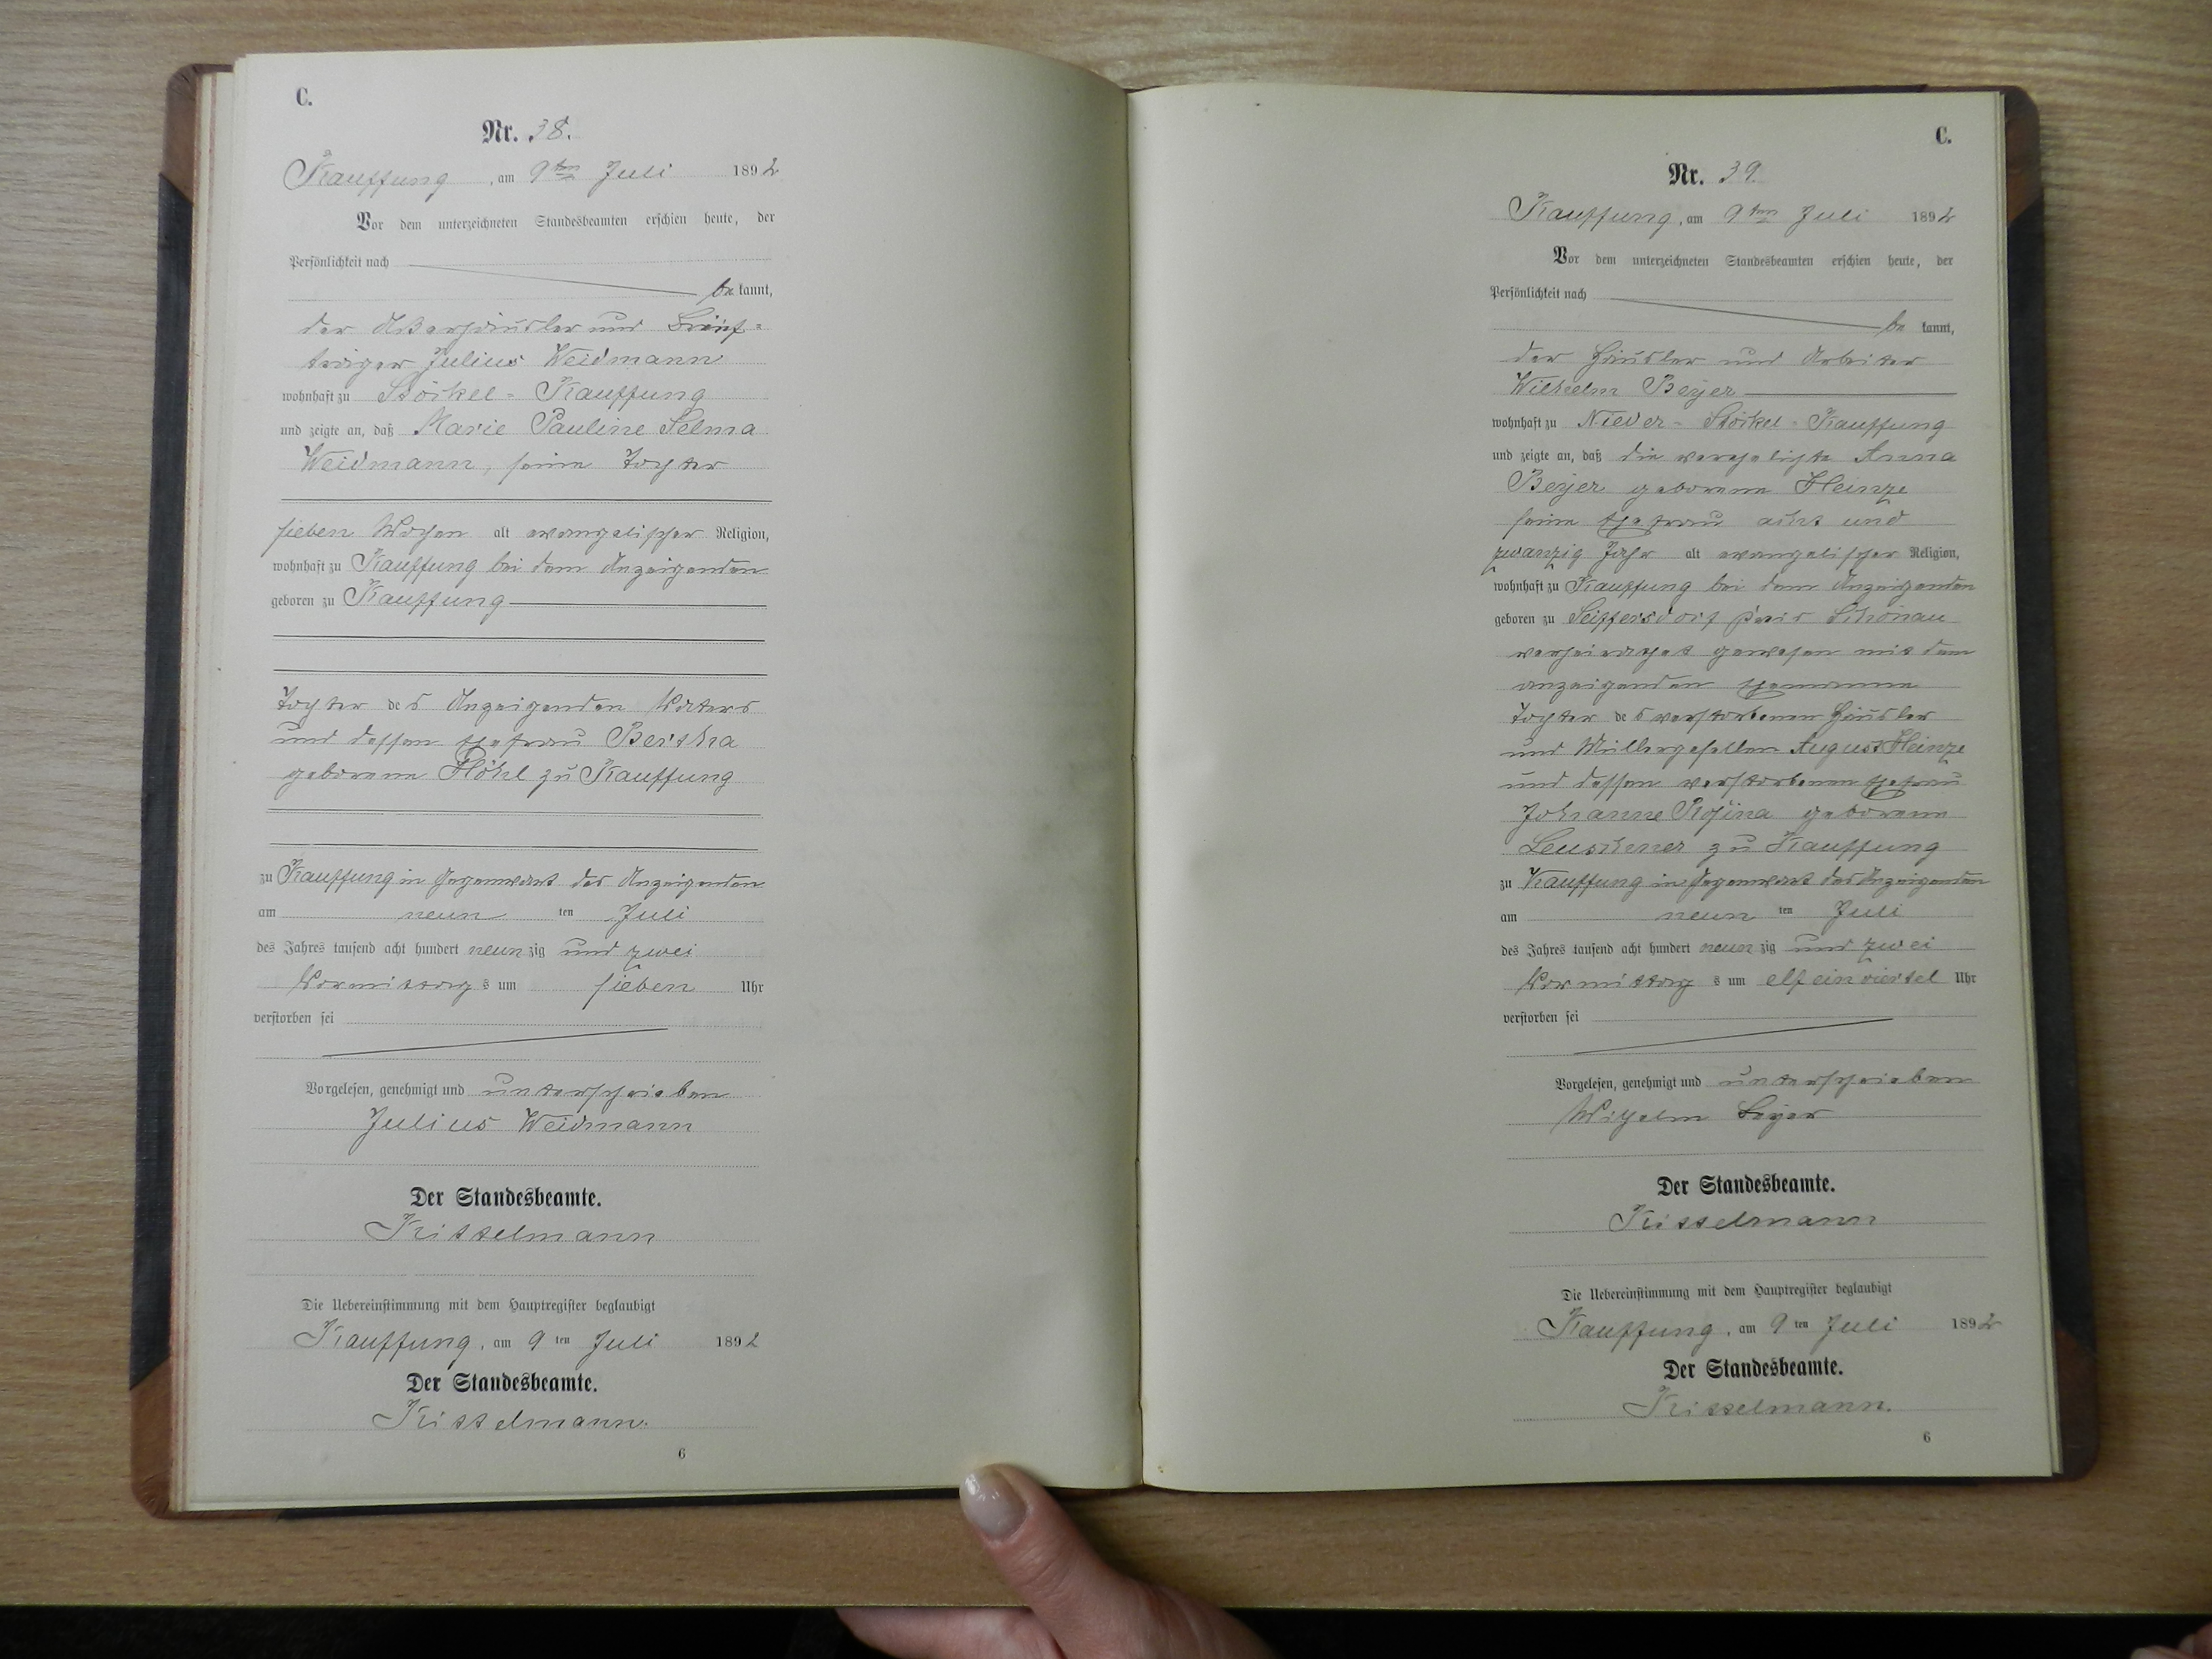 C.
Nr. 38.
Kauffung, am 9ten Juli 1892
Vor dem unterzeichneten Standesbeamten erschien heute, der
Persönlichkeit nach
be kannt,
der und Brief=
träger Julius Weidmann
wohnhaft zu Stöckel-Kauffung
und zeigte an, daß Marie Pauline Selma
Weidmann, seine Tochter
sieben Wochen alt evangelischer Religion,
wohnhaft zu Kauffung bei dem Anzeigenden
geboren zu Kauffung
Tochter des Anzeigenden Vaters
und dessen Ehefrau Bertha
geborenen zu Kauffung
zu Kauffung in Gegenwart des Anzeigenden
am neun ten Juli
des Jahres tausend acht hundert neun zig und zwei
Vormittag s um sieben Uhr
verstorben sei
Vorgelesen, genehmigt und unterschrieben
Julius Weidmann
Der Standesbeamte.
Kisselmann
Die Uebereinstimmung mit dem Hauptregister beglaubigt
Kauffung, am 9 ten Juli 1892
Der Standesbeamte.
Kisselmann.
6
C.
Nr. 39.
Kauffung, am 9ten Juli 1892
Vor dem unterzeichneten Standesbeamten erschien heute, der
Persönlichkeit nach
be kannt,
der Häusler und Arbeiter
Wilhelm Beyer
wohnhaft zu Nieder-Stöckel-Kauffung
und zeigte an, daß die verehelichte Anna
Beyer geborene Heinze
seine Ehefrau acht und
zwanzig Jahr alt evangelischer Religion,
wohnhaft zu Kauffung bei dem Anzeigenden
geboren zu Seiffersdorf Kreis Schönau
verheirathet gewesen mit dem
anzeigenden Ehemanne
Tochter des verstorbenen Häusler
und Müllergesellen August Heinze
und dessen verstorbenen Ehefrau
Johanne Rosina geborenen
Leuschner zu Kauffung
zu Kauffung in Gegenwart des Anzeigenden
am neun ten Juli
des Jahres tausend acht hundert neun zig und zwei
Vormittag s um elf einviertel Uhr
verstorben sei
Vorgelesen, genehmigt und unterschrieben
Wilhelm Beyer
Der Standesbeamte.
Kisselmann
Die Uebereinstimmung mit dem Hauptregister beglaubigt
Kauffung, am 9 ten Juli 1892
Der Standesbeamte.
Kisselmann.
6